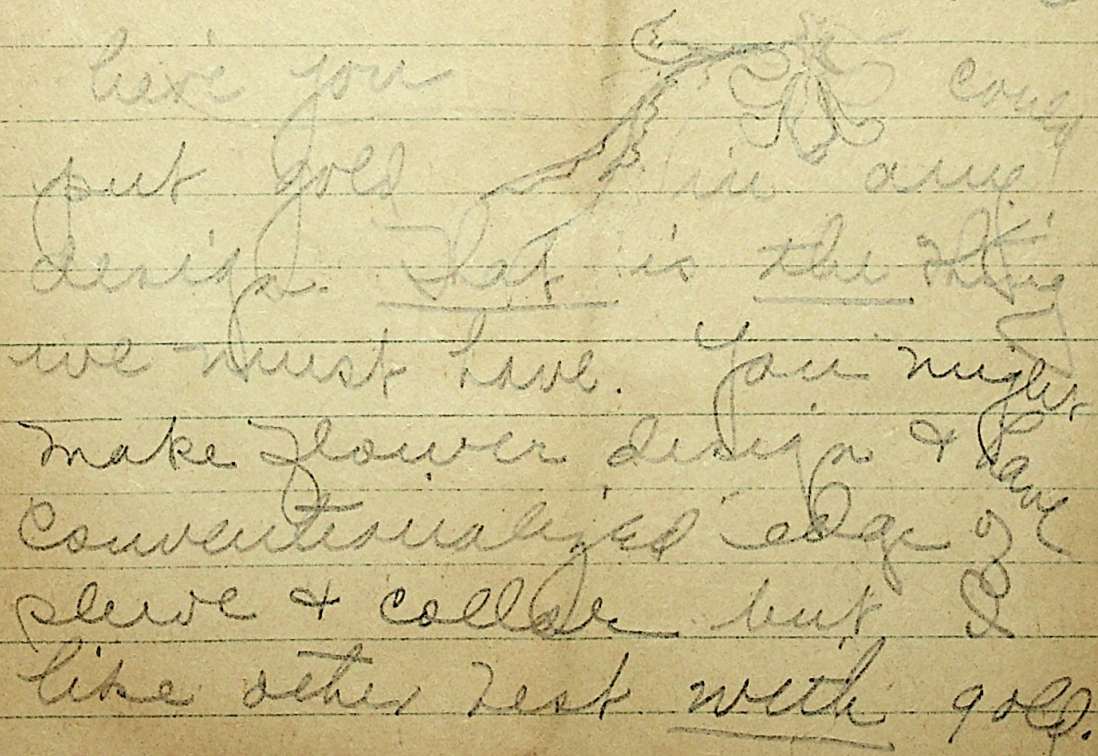 here you could
put gold in any
design. That is the thing
we must have. You might
make flower design & have
conventionalized edge of
sleeve & collar but I
like other best with gold.